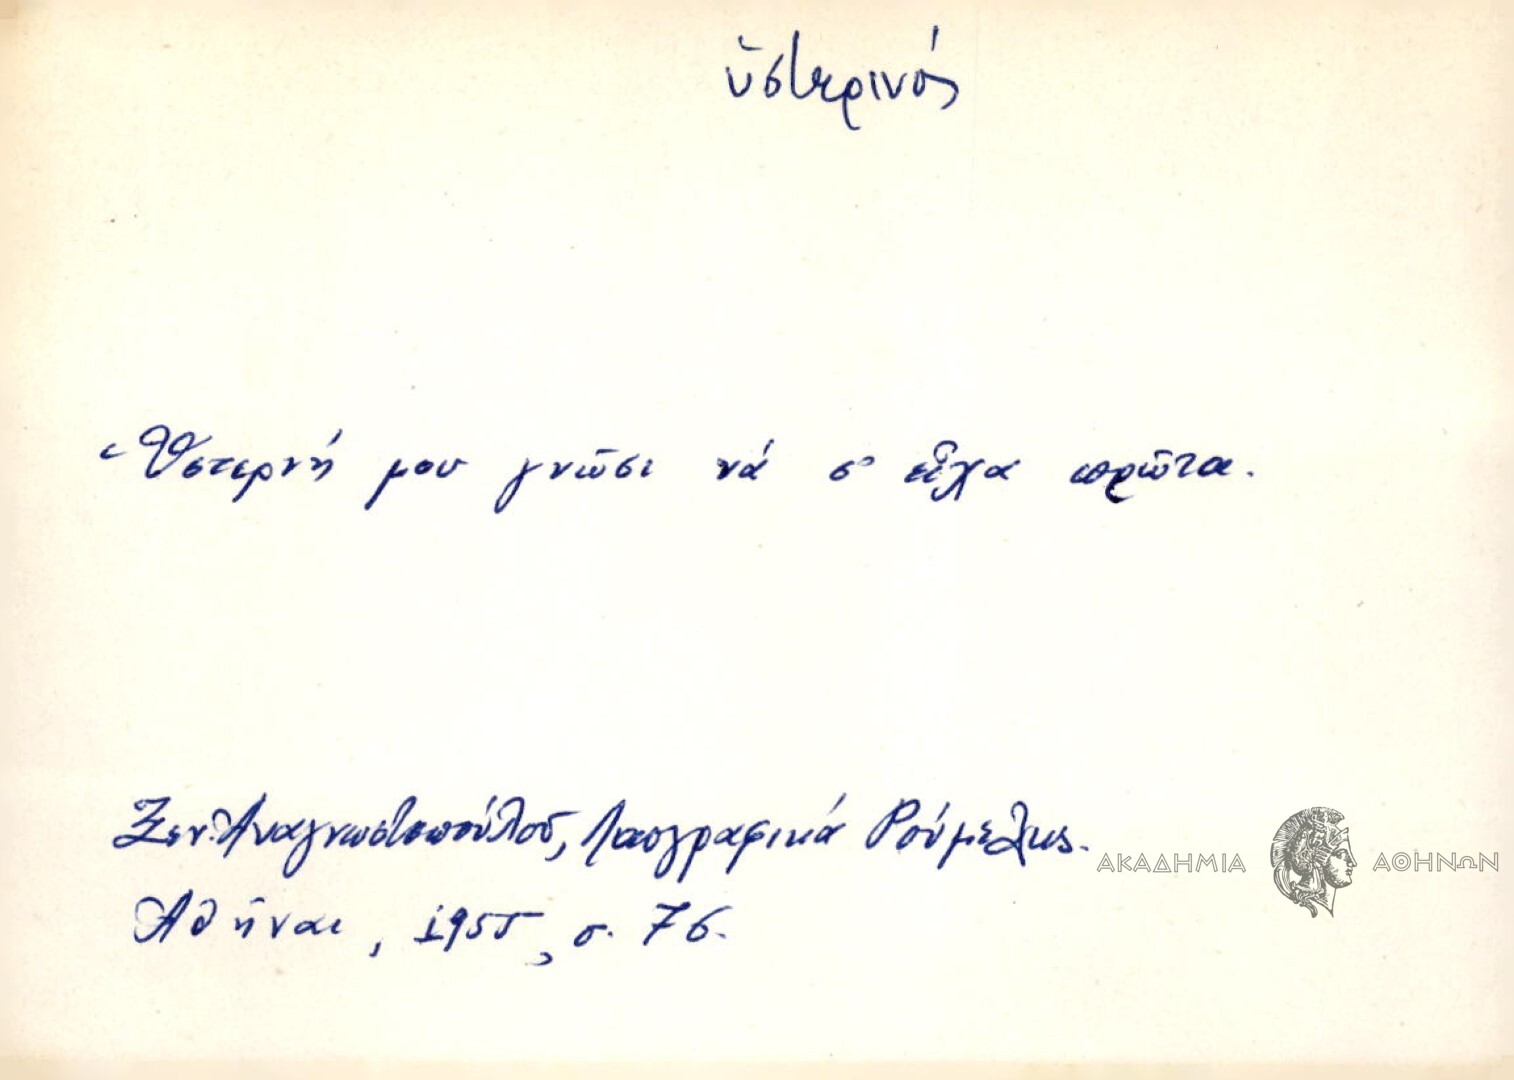 ὑστερινός
Ὑστερνή μου γνῶσι νά σ' εἶχα πρῶτα.
Ξεν. Ἀναγνωστοπούλου, Λαογραφικά Ρούμελης.
Ἀθῆναι, 1955, σ. 76.
ΑΚΑΔΗΜΙΑ ΑΘΗΝΩΝ